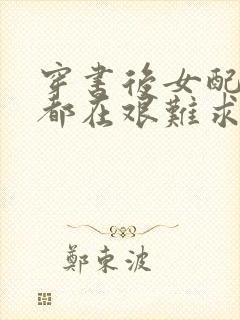 穿書後女配
都在艱難求
鄭東波